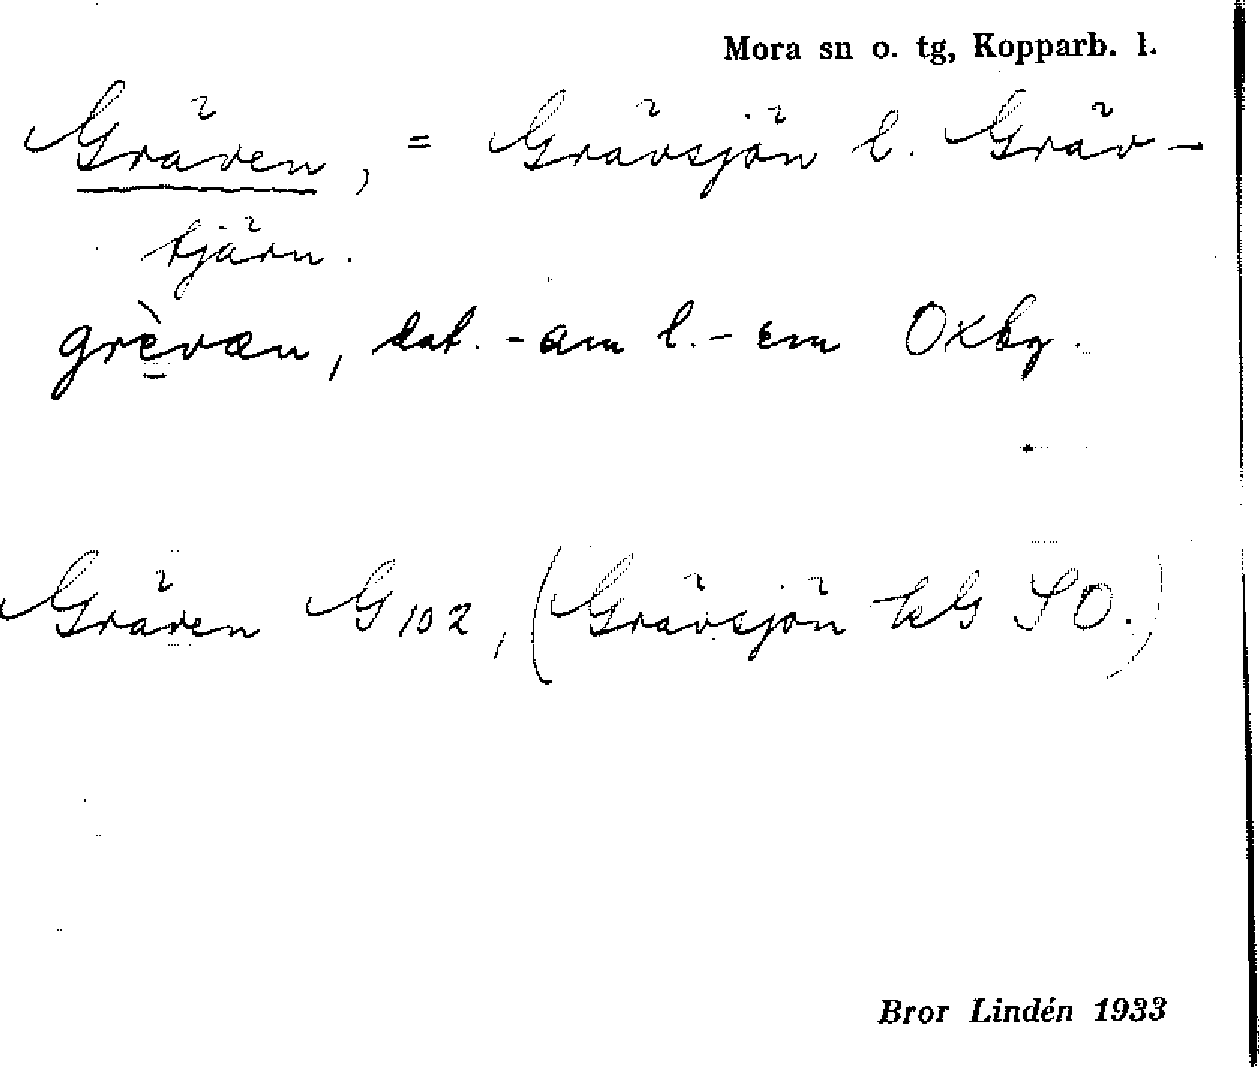 Mora sn o. tg, Kopparb. l.
Gräven, = Grävsjön l. Gräv-
tjärn.
grèvæn, dat. -am l. -em Oxbg.
Gräven G102, (Grävsjön kG SO.)
Bror Lindén 1933